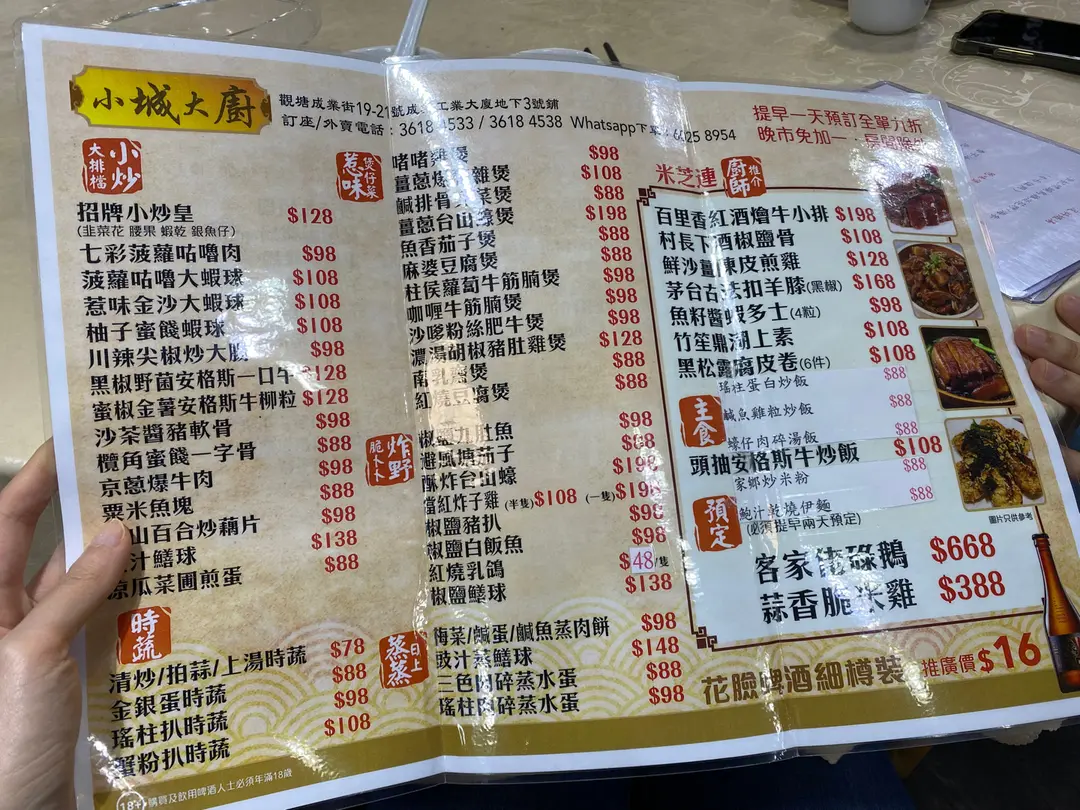 小城大廚
觀塘成業街19-21號成 工業大廈地下3號鋪
訂座/外賣電話:3618 4533 / 3618 4538 Whatsapp下單: 6025 8954
提早一天預訂全單九折
晚市免加一
大排檔 小炒
招牌小炒皇 $128
(韭菜花 腰果 蝦乾 銀魚仔)
七彩菠蘿咕嚕肉 $98
菠蘿咕嚕大蝦球 $108
惹味金沙大蝦球 $108
柚子蜜餞蝦球 $108
川辣尖椒炒大腸 $98
黑椒野菌安格斯一口牛 $128
蜜椒金薯安格斯牛柳粒 $128
沙茶醬豬軟骨 $98
欖角蜜餞一字骨 $88
京蔥爆牛肉 $98
粟米魚塊 $88
山百合炒藕片 $98
汁鱔球 $138
涼瓜菜圃煎蛋 $88
時蔬
清炒/拍蒜/上湯時蔬 $78
金銀蛋時蔬 $88
瑤柱扒時蔬 $98
蟹粉扒時蔬 $108
18+ 購買及飲用啤酒人士必須年滿18歲
惹味 煲仔菜
啫啫雞煲 $98
薑蔥爆 雜煲 $108
鹹排骨 菜煲 $88
薑蔥台山蠔煲 $198
魚香茄子煲 $88
麻婆豆腐煲 $88
柱侯蘿蔔牛筋腩煲 $98
咖喱牛筋腩煲 $98
沙嗲粉絲肥牛煲 $98
濃湯胡椒豬肚雞煲 $128
南乳 煲 $88
紅燒豆腐煲 $88
脆卜卜 炸野
椒鹽九肚魚 $98
避風塘茄子 $88
酥炸台山蠔 $198
當紅炸子雞 (半隻)$108 (一隻)$198
椒鹽豬扒 $98
椒鹽白飯魚 $98
紅燒乳鴿 $48/隻
椒鹽鱔球 $138
日上 蒸蒸
梅菜/鹹蛋/鹹魚蒸肉餅 $98
豉汁蒸鱔球 $148
三色肉碎蒸水蛋 $88
瑤柱肉碎蒸水蛋 $98
米芝連 廚師推介
百里香紅酒燴牛小排 $198
村長下酒椒鹽骨 $108
鮮沙薑陳皮煎雞 $128
茅台古法扣羊膝(黑椒) $168
魚籽醬蝦多士(4粒) $98
竹笙鼎湖上素 $108
黑松露腐皮卷(6件) $108
主食
瑤柱蛋白炒飯 $88
鹹魚雞粒炒飯 $88
蠔仔肉碎湯飯 $88
頭抽安格斯牛炒飯 $108
家鄉炒米粉 $88
鮑汁乾燒伊麵 $88
預定
(必須提早兩天預定)
客家 碌鵝 $668
蒜香脆米雞 $388
圖片只供參考
花臉啤酒細樽裝 推廣價$16